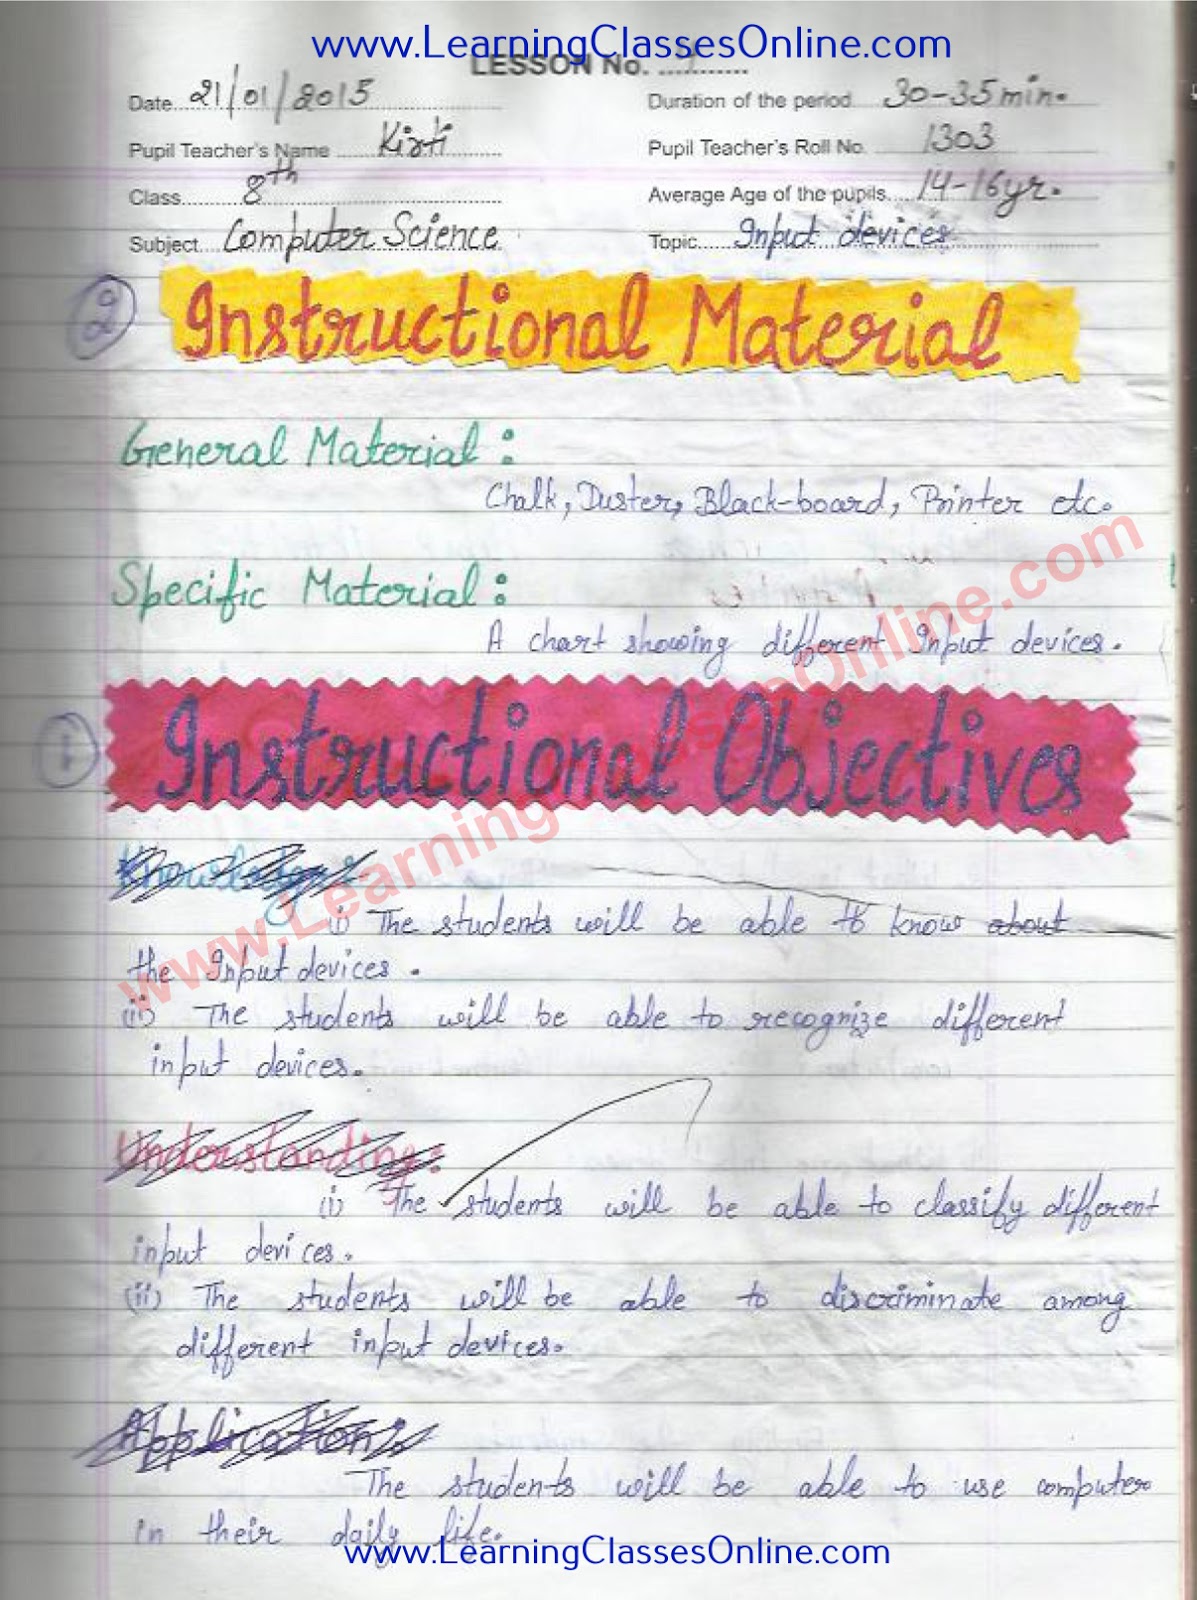 www.LearningClassesOnline.com
LESSON No. ............
Date 21/01/2015 Duration of the period 30-35 min.
Pupil Teacher's Name Kirti Pupil Teacher's Roll No. 1303
Class 8th Average Age of the pupils 14-16yr.
Subject Computer Science Topic Input devices
2 Instructional Material
General Material :
Chalk, Duster, Black-board, Printer etc.
Specific Material :
A chart showing different Input devices.
1 Instructional Objectives
Knowledge :
(i) The students will be able to know about
the Input devices.
(ii) The students will be able to recognize different
input devices.
Understanding :
(i) The students will be able to classify different
input devices.
(ii) The students will be able to discriminate among
different input devices.
Application :
The students will be able to use computer
in their daily life.
www.LearningClassesOnline.com
www.LearningClassesOnline.com